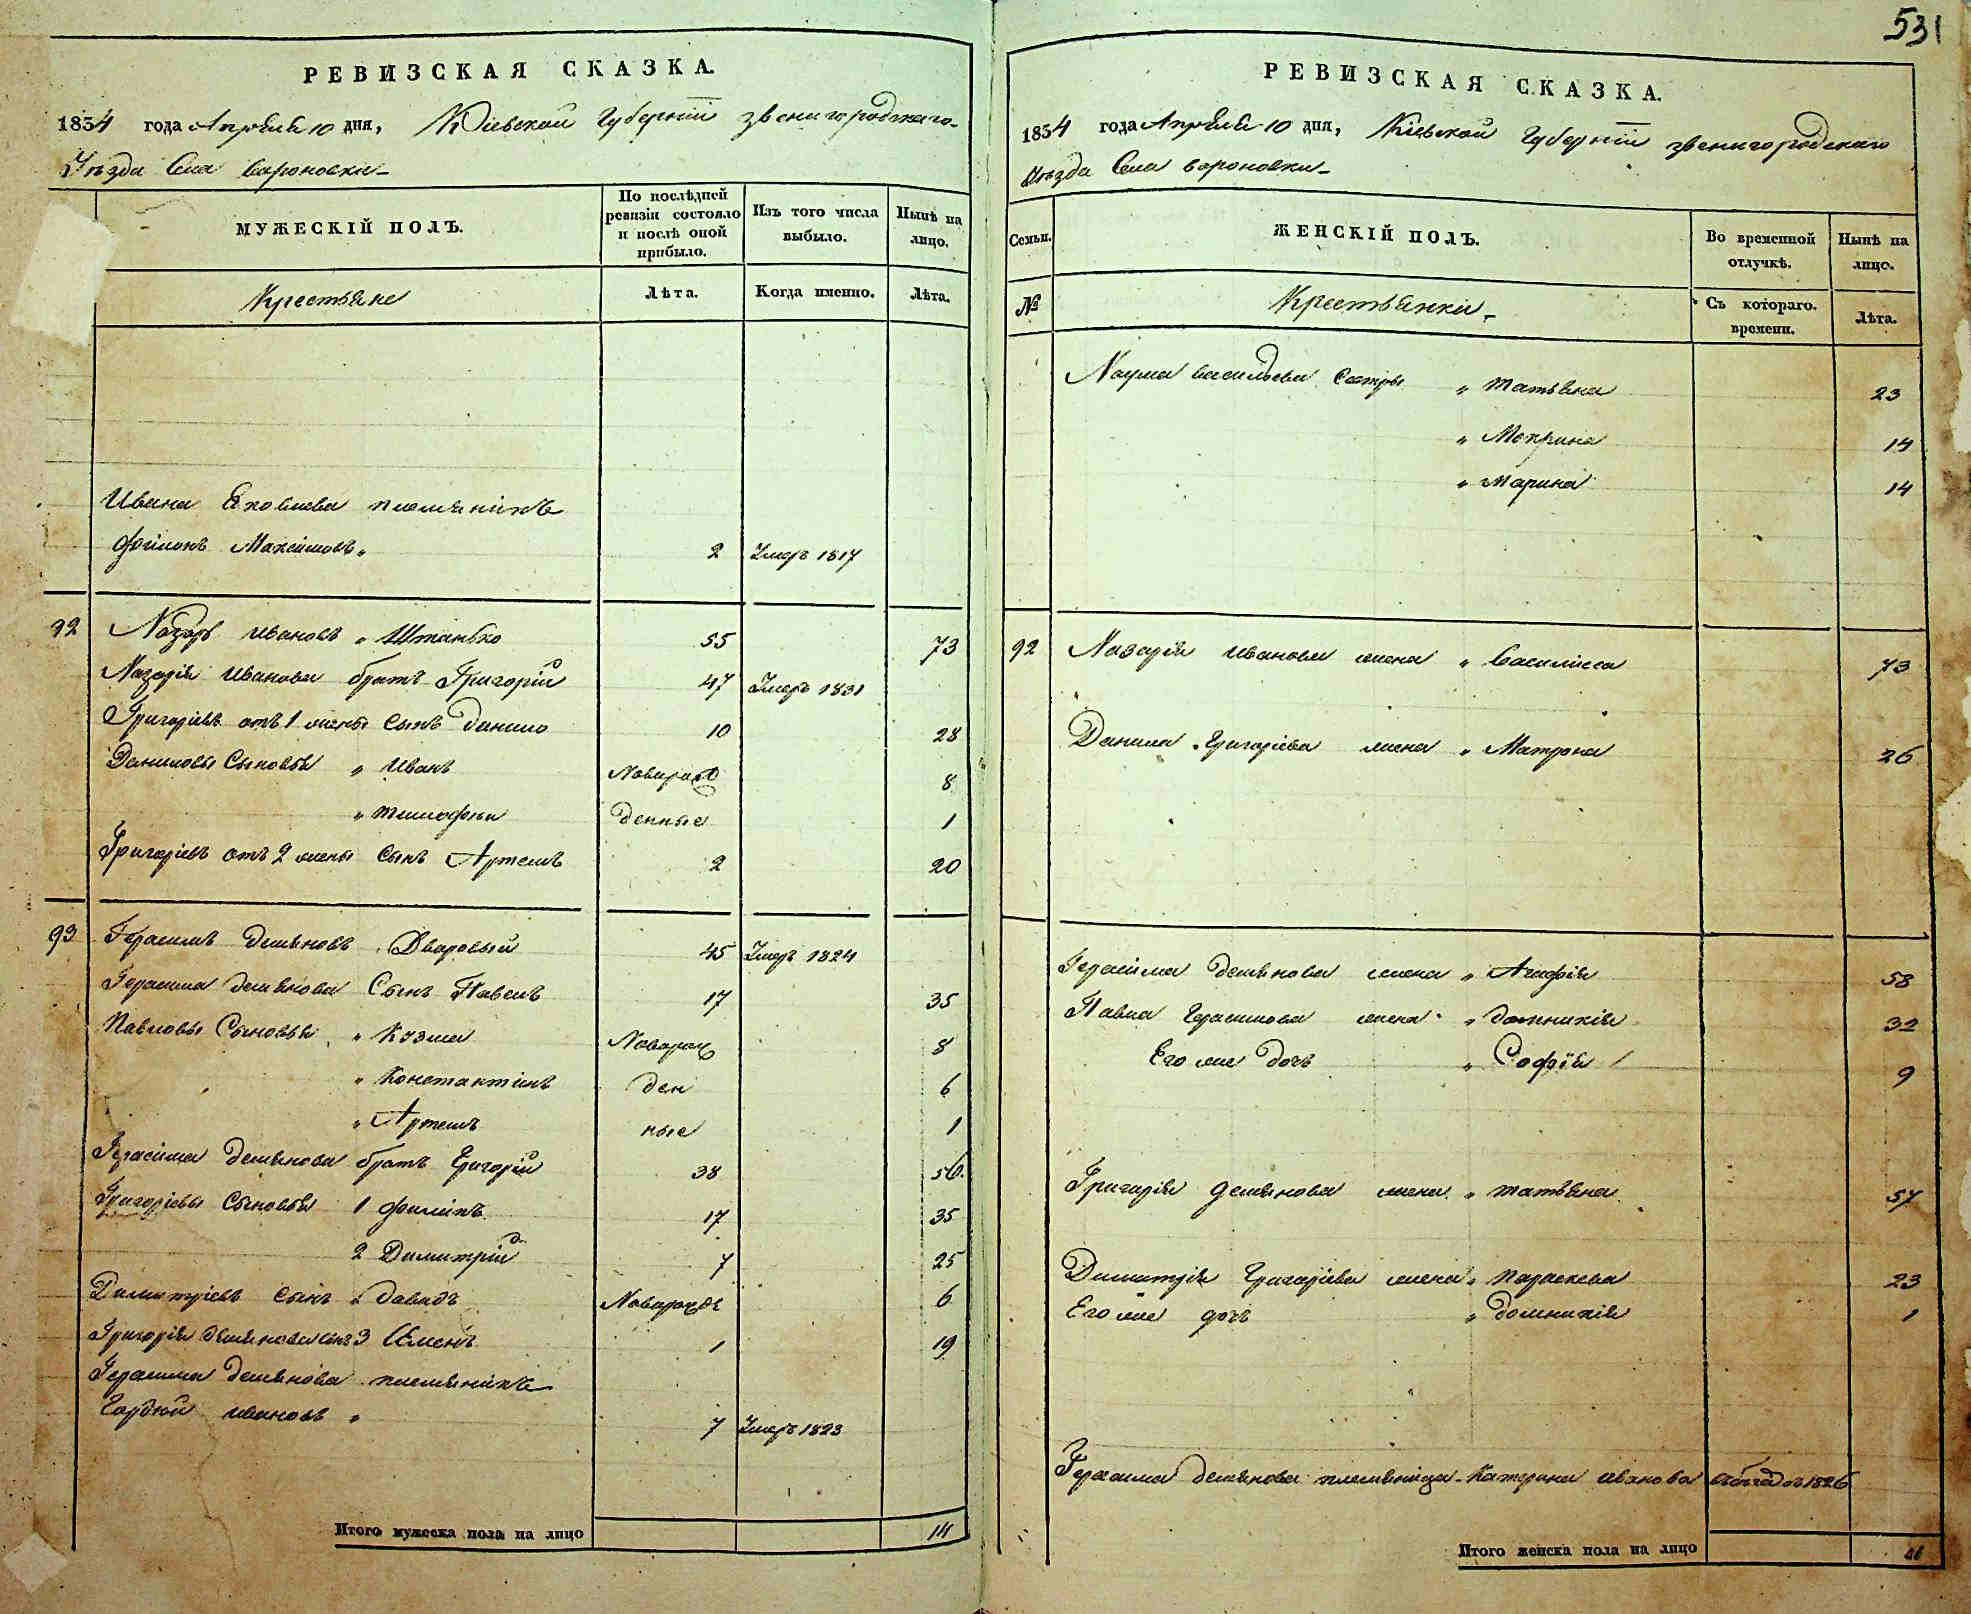 531
РЕВИЗСКАЯ СКАЗКА.
1834 года Апреля 10 дня, Кіевской Губерніи звенигородскаго
Уѣзда Села вороновки
МУЖЕСКІЙ ПОЛЪ.
По послѣдней ревизіи состояло и послѣ оной прибыло.
Изъ того числа выбыло.
Нынѣ на лицо.
Крестьяне
Лѣта.
Когда именно.
Лѣта.
Ивана Яковлева племянникъ
Филипъ Максимовъ „ 2 Умеръ 1817
92 Назаръ Ивановъ „ Штанько 55 73
Назарія Иванова братъ Григорій 47 Умеръ 1831
Григоріевъ отъ 1 жены сынъ Данило 10 28
Даниловы Сыновья „ Иванъ Новорож 8
„ Тимофеи денные 1
Григоріевъ отъ 2 жены сынъ Артемъ 2 20
93 Герасимъ Демяновъ Дваровый 45 Умеръ 1824
Герасима Демянова Сынъ Павелъ 17 35
Павловы Сыновья „ Кузма Новорож 8
„ Константинъ ден 6
„ Артемъ ные 1
Герасима Демянова братъ Григорій 38 56
Григоріевы Сыновья 1 Филипъ 17 35
2 Димитрій 7 25
Димитріевъ Сынъ „ Давидъ Новорожде 6
Григорія Демянова сынъ 3 Семенъ 1 19
Герасима Демянова племянникъ
Гордѣй Ивановъ „ 7 Умеръ 1823
Итого мужеска пола на лицо 14
РЕВИЗСКАЯ СКАЗКА.
1834 года Апреля 10 дня, Кіевской Губерніи звенигородскаго
Уѣзда Села вороновки
Семьи.
ЖЕНСКІЙ ПОЛЪ.
Во временной отлучкѣ.
Нынѣ на лицо.
№
Крестьянки
Съ котораго. времени.
Лѣта.
Наума васильева Сестры „ Татьяна 23
„ Мокрина 14
„ Марина 14
92 Назарія Иванова жена „ Василиса 73
Данила Григоріева жена „ Матрона 26
Герасима Демянова жена „ Агафія 58
Павла Герасимова жена „ Домникія 32
Его же дочь „ Софія 9
Григорія Демянова жена „ Татьяна 57
Димитрія Григоріева жена „ Параскева 23
Его же дочь „ Домникія 1
Герасима Демянова племяница Катерина Иванова 1826
Итого женска пола на лицо